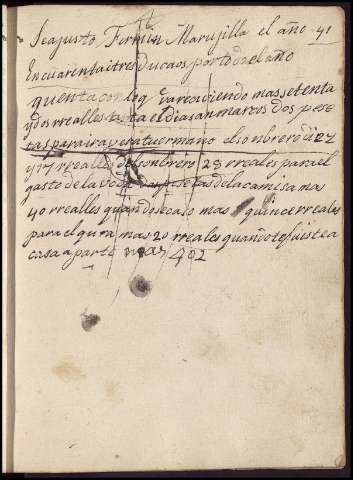 Seajusto Firmin Marujilla el año 41
En cuarentaitres ducaos por todo el año
quentacon loq barecuiendo mas setenta
ydos rrealles asta el dia san marcos dos pese
tas para ir a ver a tu ermano el sonbrero
y 17 rrealles del sonbrero 28 rreales para el
gasto de la pesetas de la camisa mas
40 rrealles quando se caso mas quince rreales
para el qura mas 20 rreales quando te fuiste a
casa a parte mas 402